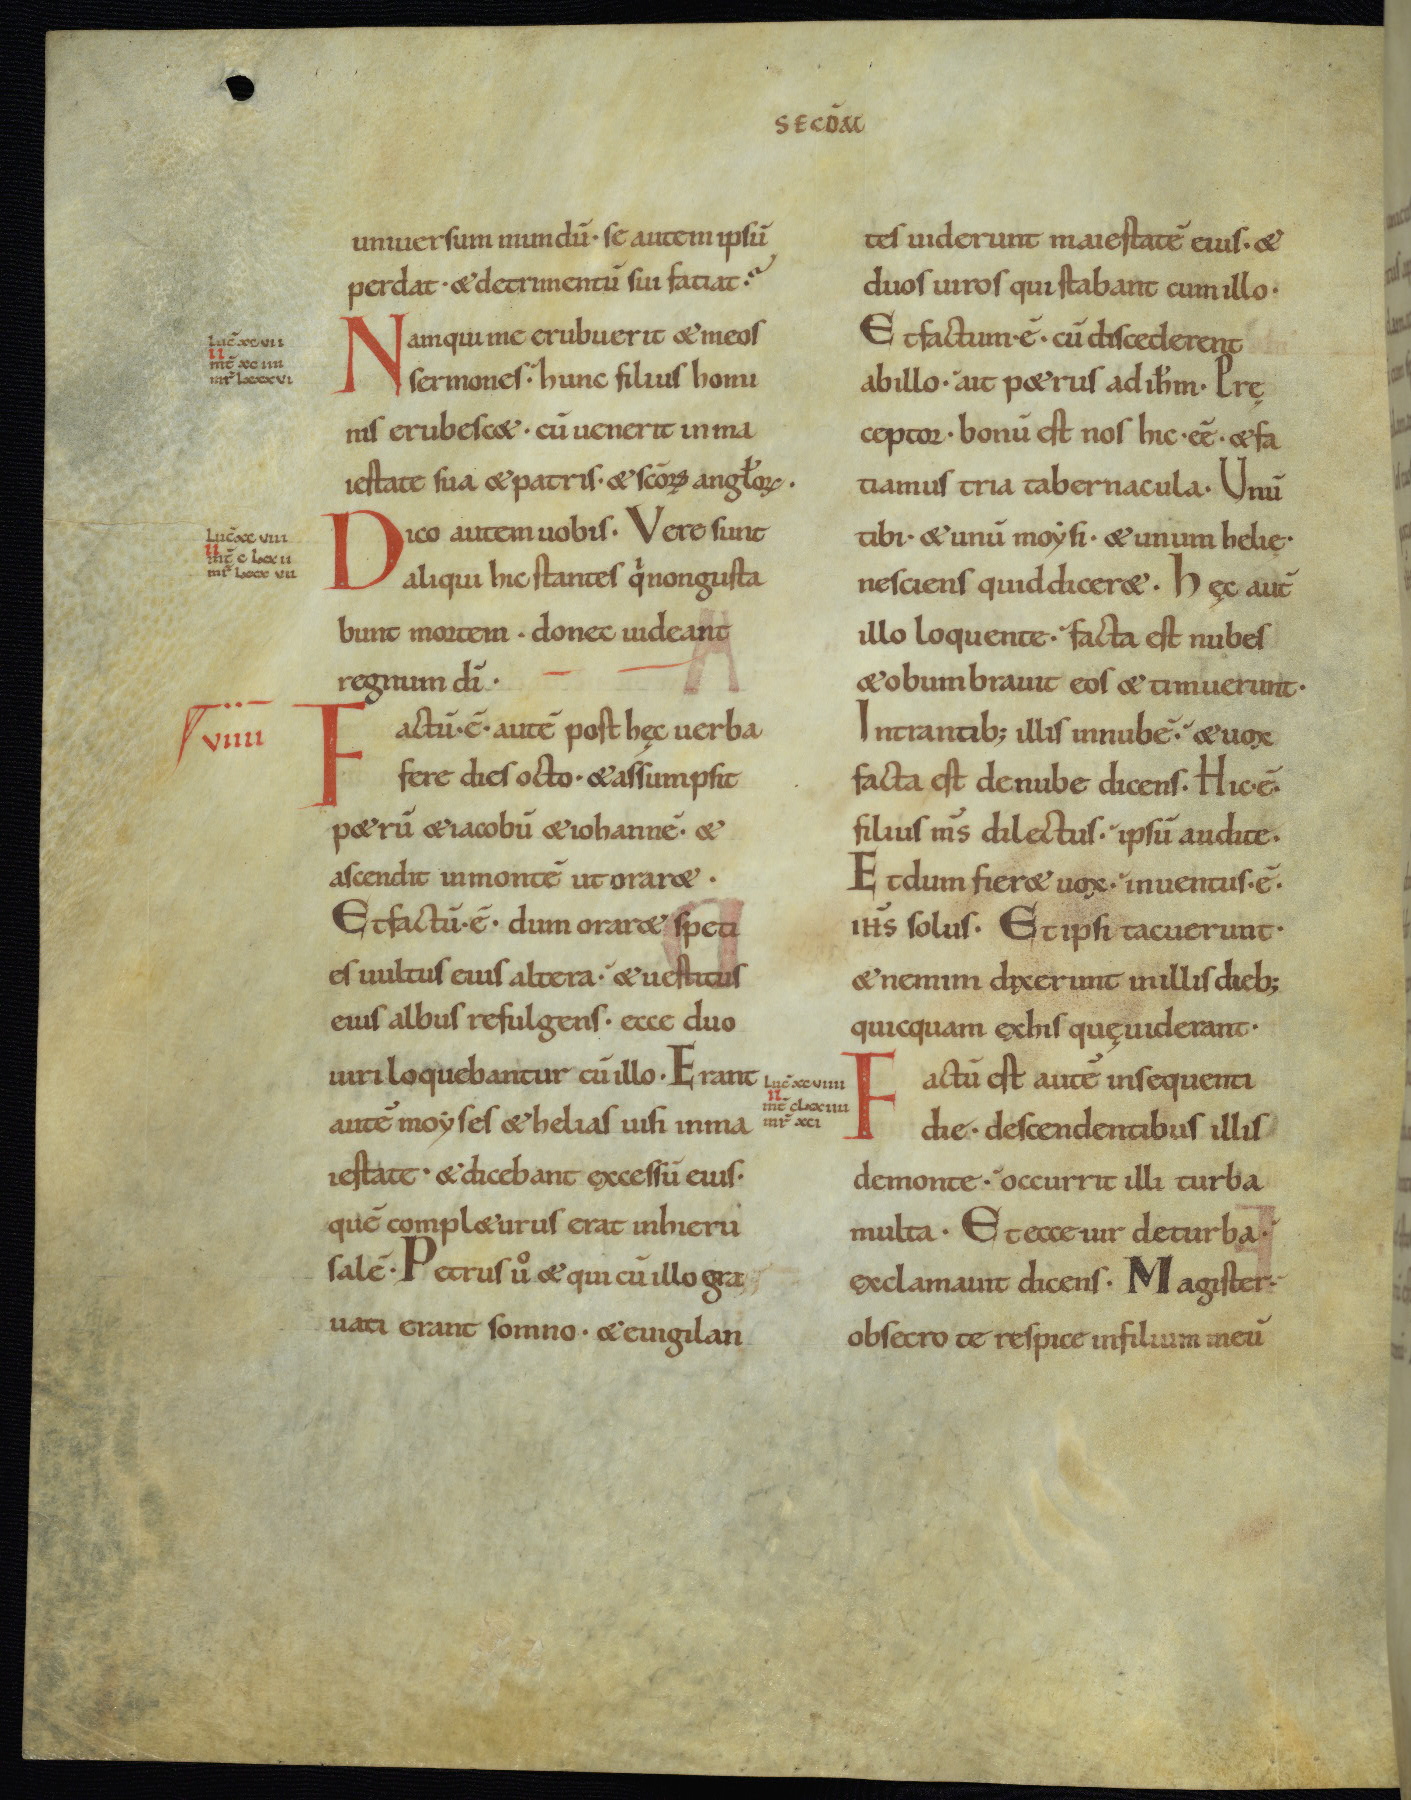 SECD̄M
uniuersum mundū· se autem ipsū
perdat· & detrimentū sui faciat·
Luc̄ xcvii
II
mt̄ xciiii
mr̄ lxxxvi
Nam qui me erubuerit & meos
sermones· hunc filius homi
nis erubesc&· cū uenerit in ma
iestate sua & patris· & scōꝝ angłoꝝ·
Luc̄ xcviii
II
mt̄ clxxii
mr̄ lxxxvii
Dico autem uobis· Vere sunt
aliqui hic stantes q̇ non gusta
bunt mortem· donec uideant
regnum dī·
viiii
Factū·ē· autē post hęc uerba
fere dies octo· & assumpsit
p&rū & iacobū & iohannē· &
ascendit in montē ut orar&·
Et factū·ē· dum orar& speci
es uultus eius altera· & uestitus
eius albus refulgens· ecce duo
uiri loquebantur cū illo· Erant
autē moẏses & helias uisi in ma
iestate· & dicebant excessū eius·
quē compl&urus erat in hieru
salē· Petrus ůo & qui cū illo gra
uati erant somno· & euigilan
tes uiderunt maiestatē eius· &
duos uiros qui stabant cum illo·
Et factum·ē· cū discederent
ab illo· ait p&rus ad ihm̄· Prę
ceptor· bonū est nos hic·eē· & fa
ciamus tria tabernacula· Unū
tibi· & unū moẏsi· & unum helię·
nesciens quid dicer&· Hęc aut̄
illo loquente· facta est nubes
& obumbrauit eos & timuerunt·
Intrantib; illis in nubē· & uox
facta est de nube dicens· Hic·ē·
filius m̄s dilectus· ipsū audite·
Et dum fier& uox· inuentus·ē·
ih̄s solus· Et ipsi tacuerunt·
& nemini dixerunt in illis dieb;
quicquam ex his quę uiderant·
Luc̄ xcviiii
II
mt̄ clxxiiii
mr̄ xci
Factū est autē in sequenti
die· descendentibus illis
de monte· occurrit illi turba
multa· Et ecce uir de turba·
exclamauit dicens· Magister·
obsecro te respice in filium meū